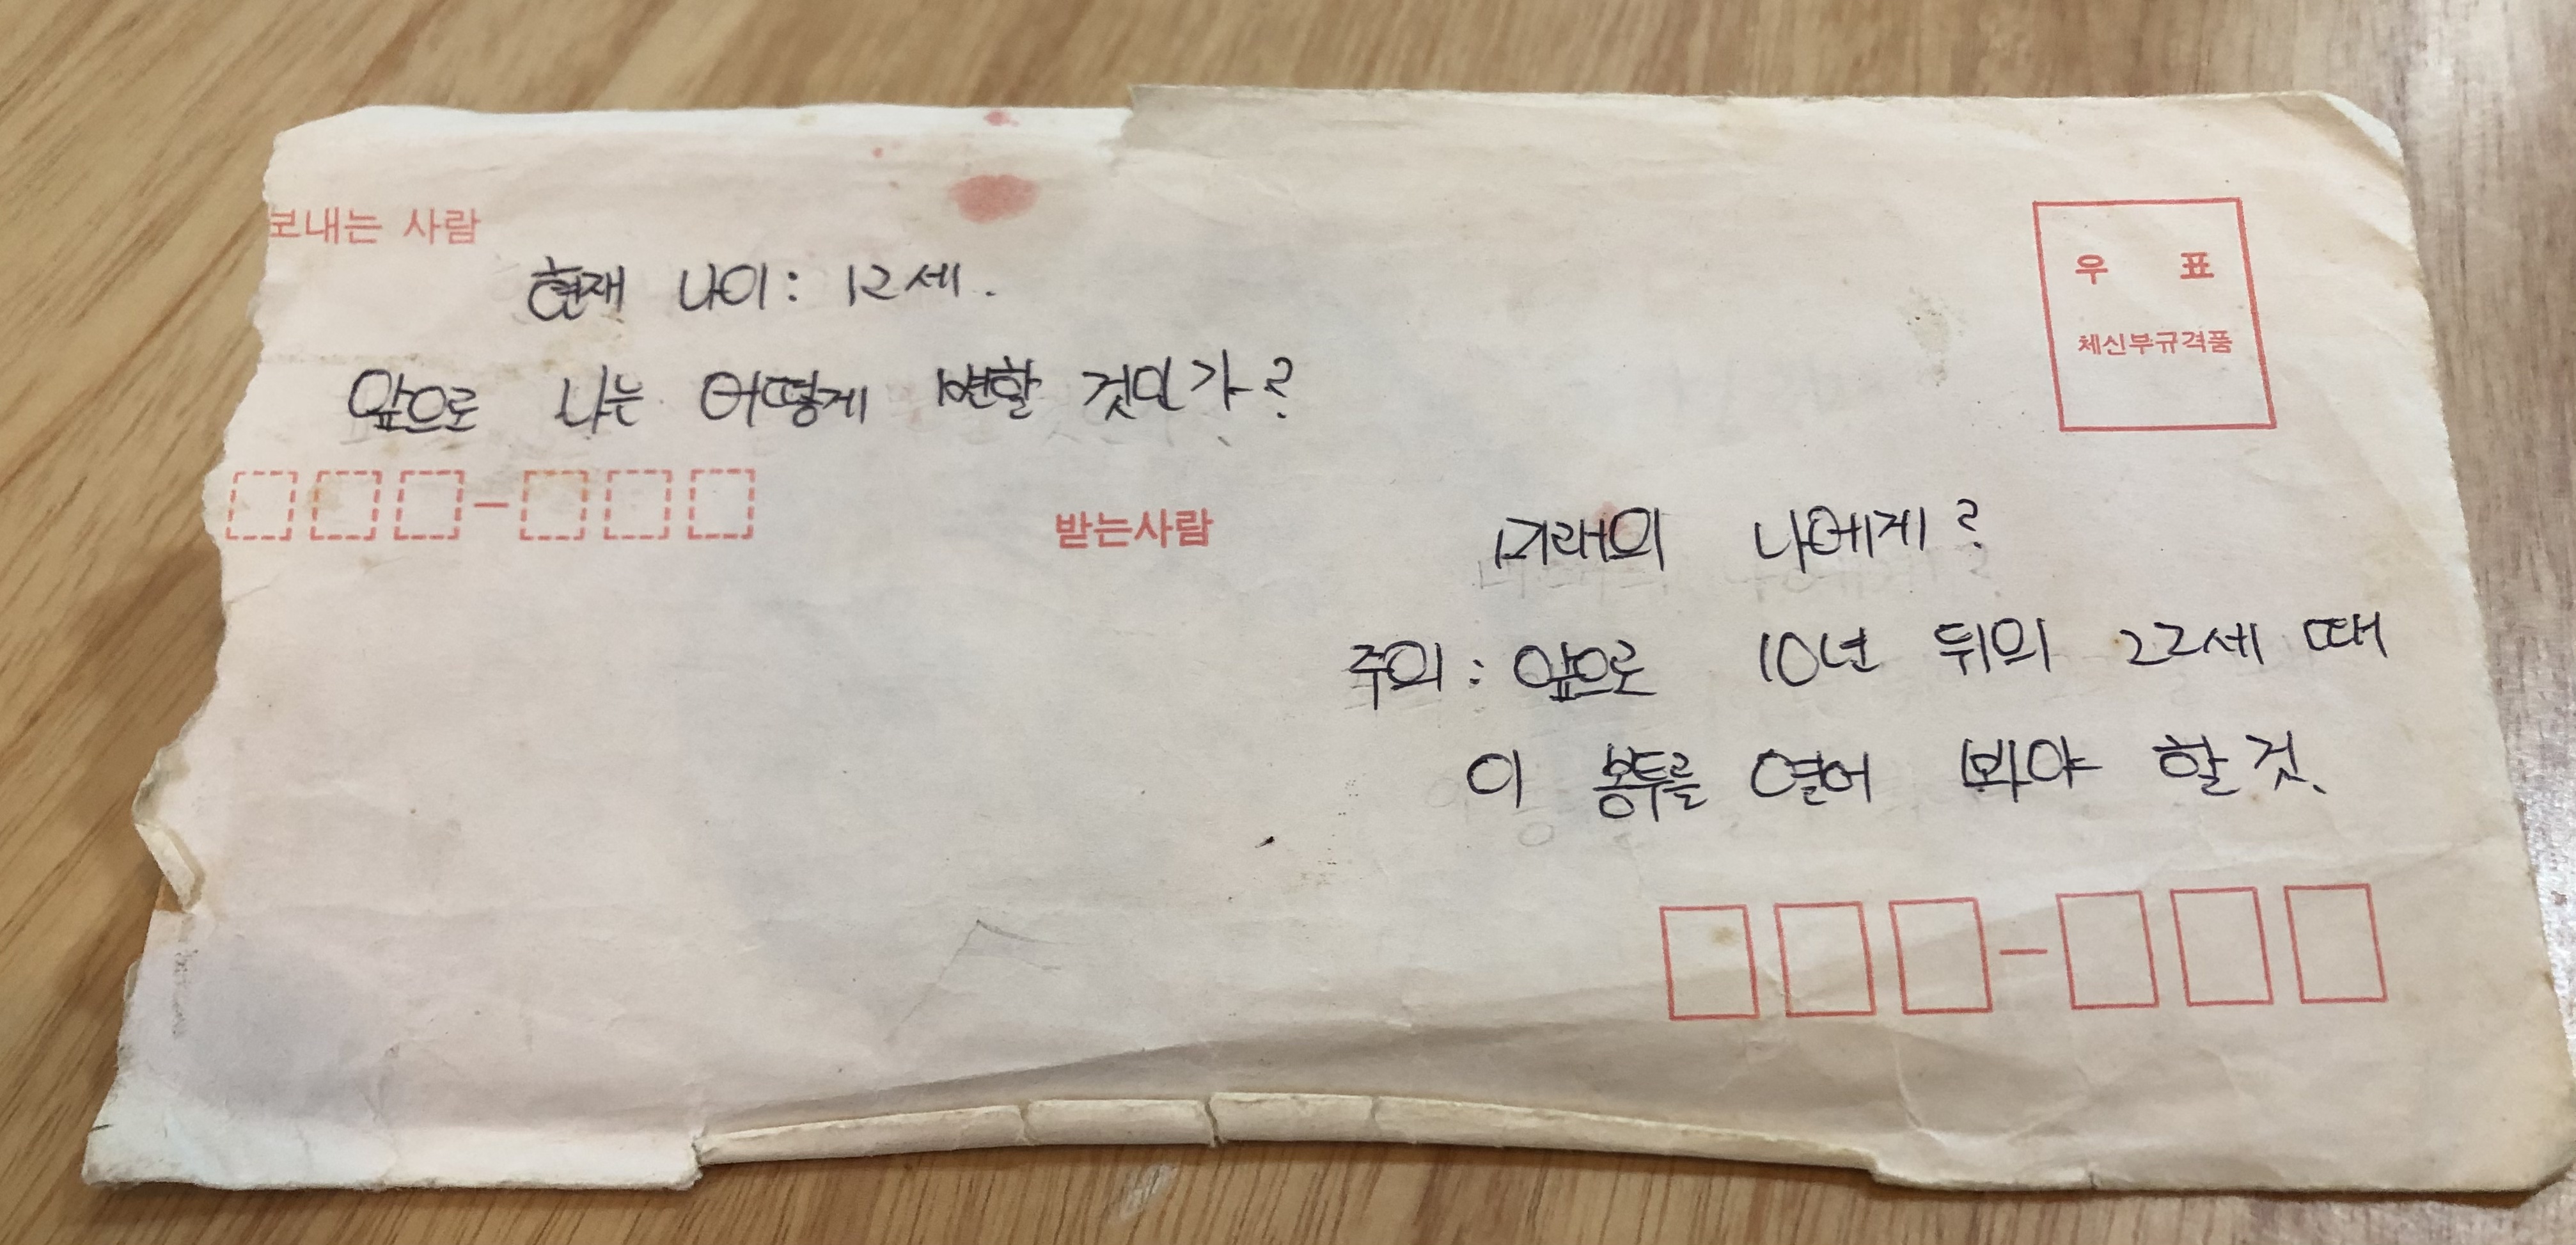 보내는 사람
현재 나이: 12세.
앞으로 나는 어떻게 변할 것인가?
우 표
체신부규격품
받는사람
미래의 나에게?
주의: 앞으로 10년 뒤의 22세 때
이 봉투를 열어 봐야 할 것.